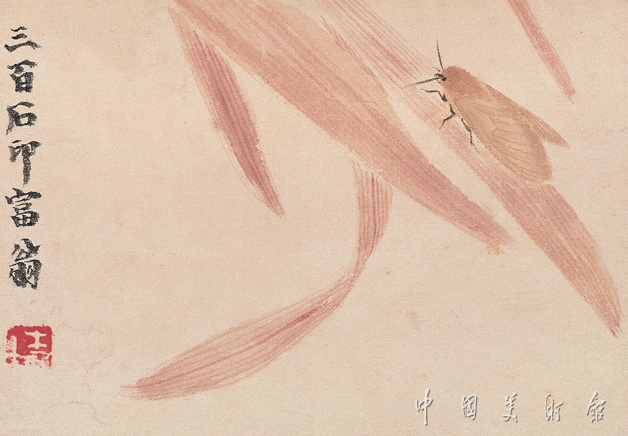 三百石印富翁
中国美术馆